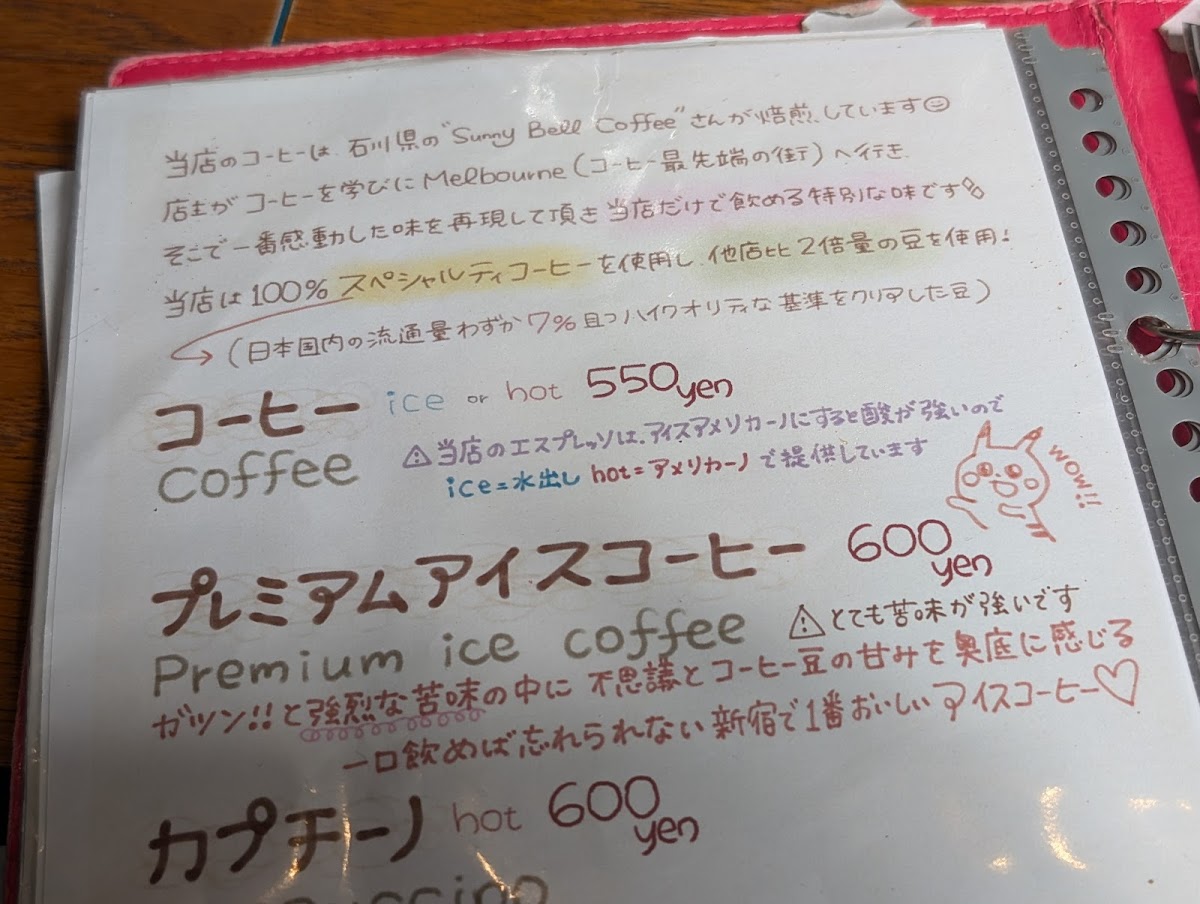 当店のコーヒーは、石川県の"Sunny Bell Coffee"さんが焙煎しています
店主がコーヒーを学びにMelbourne(コーヒー最先端の街)へ行き
そこで一番感動した味を再現して頂き当店だけで飲める特別な味です
当店は100%スペシャルティコーヒーを使用し、他店比2倍量の豆を使用!
(日本国内の流通量わずか7%且つハイクオリティな基準をクリアした豆)
コーヒー ice or hot 550yen
coffee
⚠当店のエスプレッソは、アイスアメリカーノにすると酸が強いので
ice=水出し hot=アメリカーノで提供しています
WOW!!
プレミアムアイスコーヒー 600yen
Premium ice coffee ⚠とても苦味が強いです
ガツン!!と強烈な苦味の中に不思議とコーヒー豆の甘みを奥底に感じる
一口飲めば忘れられない新宿で1番おいしいアイスコーヒー♡
カプチーノ hot 600yen